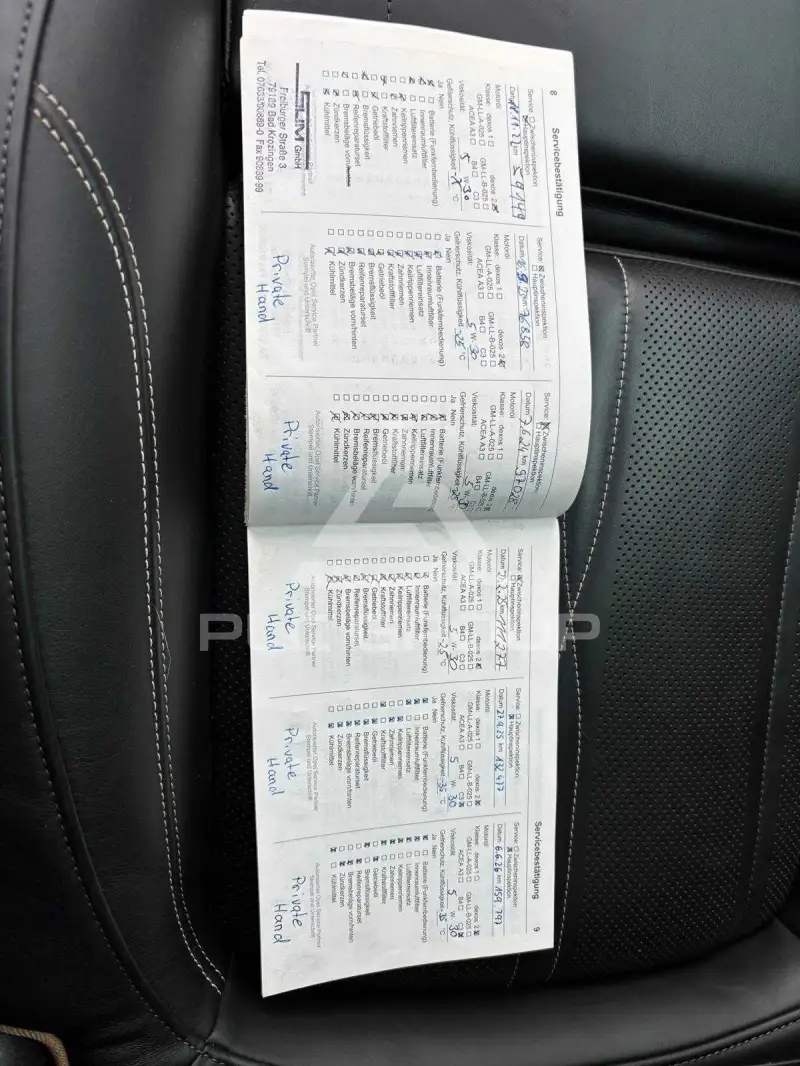 8 Servicebestätigung
Service: Zwischeninspektion
Hauptinspektion
Datum 11.11.22 km 59149
Motoröl
Klasse: dexos 1 dexos 2
GM-LL-A-025 GM-LL-B-025
ACEA A3 B4 C3
Viskosität: 5 W- 30
Gefrierschutz, Kühlflüssigkeit °C
Ja Nein
Batterie (Funkfernbedienung)
Innenraumluftfilter
Luftfiltereinsatz
Keilrippenriemen
Zahnriemen
Kraftstofffilter
Getriebeöl
Bremsflüssigkeit
Reifenreparaturset
Bremsbeläge vorn/hinten
Zündkerzen
Kühlmittel
GmbH
Freiburger Straße 3
79189 Bad Krozingen
Tel. 07633/90889-0 Fax 90889-99
Service: Zwischeninspektion
Hauptinspektion
Datum km 76850
Motoröl
Klasse: dexos 1 dexos 2
GM-LL-A-025 GM-LL-B-025
ACEA A3 B4 C3
Viskosität: 5 W- 30
Gefrierschutz, Kühlflüssigkeit -25 °C
Ja Nein
Batterie (Funkfernbedienung)
Innenraumluftfilter
Luftfiltereinsatz
Keilrippenriemen
Zahnriemen
Kraftstofffilter
Getriebeöl
Bremsflüssigkeit
Reifenreparaturset
Bremsbeläge vorn/hinten
Zündkerzen
Kühlmittel
Autorisierter Opel Service Partner
Stempel und Unterschrift
Private
Hand
Service: Zwischeninspektion
Hauptinspektion
Datum 7.6.24 km 97028
Motoröl
Klasse: dexos 1 dexos 2
GM-LL-A-025 GM-LL-B-025
ACEA A3 B4
Viskosität: 5 W- 30
Gefrierschutz, Kühlflüssigkeit -25 °C
Ja Nein
Batterie (Funkfernbedienung)
Innenraumluftfilter
Luftfiltereinsatz
Keilrippenriemen
Zahnriemen
Kraftstofffilter
Getriebeöl
Bremsflüssigkeit
Reifenreparaturset
Bremsbeläge vorn/hinten
Zündkerzen
Kühlmittel
Autorisierter Opel Service Partner
Stempel und Unterschrift
Private
Hand
Servicebestätigung 9
Service: Zwischeninspektion
Hauptinspektion
Datum km 111277
Motoröl
Klasse: dexos 1 dexos 2
GM-LL-A-025 GM-LL-B-025
ACEA A3 B4 C3
Viskosität: 5 W- 30
Gefrierschutz, Kühlflüssigkeit -25 °C
Ja Nein
Batterie (Funkfernbedienung)
Innenraumluftfilter
Luftfiltereinsatz
Keilrippenriemen
Zahnriemen
Kraftstofffilter
Getriebeöl
Bremsflüssigkeit
Reifenreparaturset
Bremsbeläge vorn/hinten
Zündkerzen
Kühlmittel
Autorisierter Opel Service Partner
Stempel und Unterschrift
Private
Hand
Service: Zwischeninspektion
Hauptinspektion
Datum 27.9.25 km 132 477
Motoröl
Klasse: dexos 1 dexos 2
GM-LL-A-025 GM-LL-B-025
ACEA A3 B4 C3
Viskosität: 5 W- 30
Gefrierschutz, Kühlflüssigkeit -35 °C
Ja Nein
Batterie (Funkfernbedienung)
Innenraumluftfilter
Luftfiltereinsatz
Keilrippenriemen
Zahnriemen
Kraftstofffilter
Getriebeöl
Bremsflüssigkeit
Reifenreparaturset
Bremsbeläge vorn/hinten
Zündkerzen
Kühlmittel
Autorisierter Opel Service Partner
Stempel und Unterschrift
Private
Hand
Service: Zwischeninspektion
Hauptinspektion
Datum 6.6.26 km 159 797
Motoröl
Klasse: dexos 1 dexos 2
GM-LL-A-025 GM-LL-B-025
ACEA A3 B4 C3
Viskosität: 5 W- 30
Gefrierschutz, Kühlflüssigkeit -35 °C
Ja Nein
Batterie (Funkfernbedienung)
Innenraumluftfilter
Luftfiltereinsatz
Keilrippenriemen
Zahnriemen
Kraftstofffilter
Getriebeöl
Bremsflüssigkeit
Reifenreparaturset
Bremsbeläge vorn/hinten
Zündkerzen
Kühlmittel
Autorisierter Opel Service Partner
Stempel und Unterschrift
Private
Hand